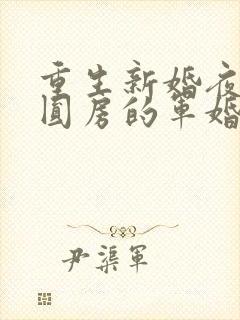 重生新婚夜
圆房的军婚
尹渠军